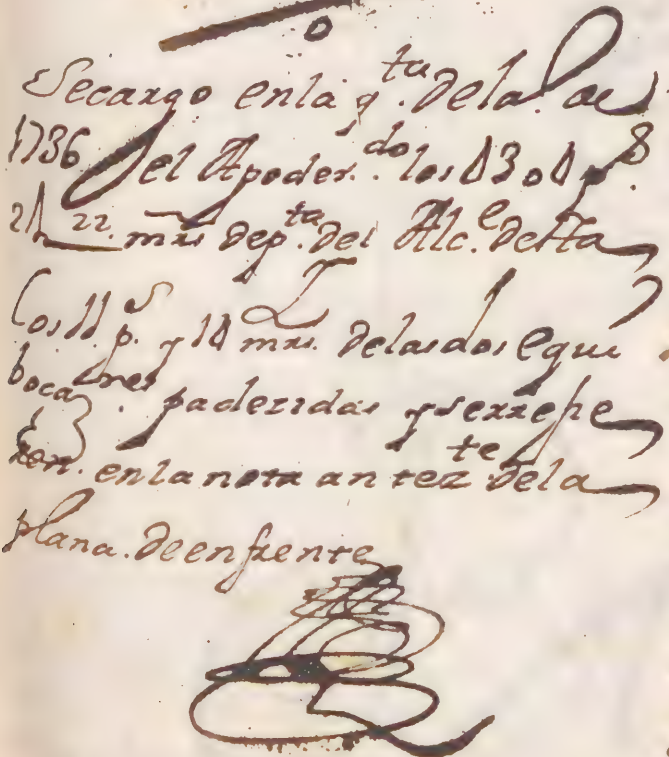 o
Secargo enla q.ta dela de
1736 el Apoder.do los
22 mrs dep.ta del Alc.e desta
los 11 p.s y 10 mrs. delasdos equi
boca.nes padezidas yserrefie
ren. enlanota antez.te dela
plana. deenfrente